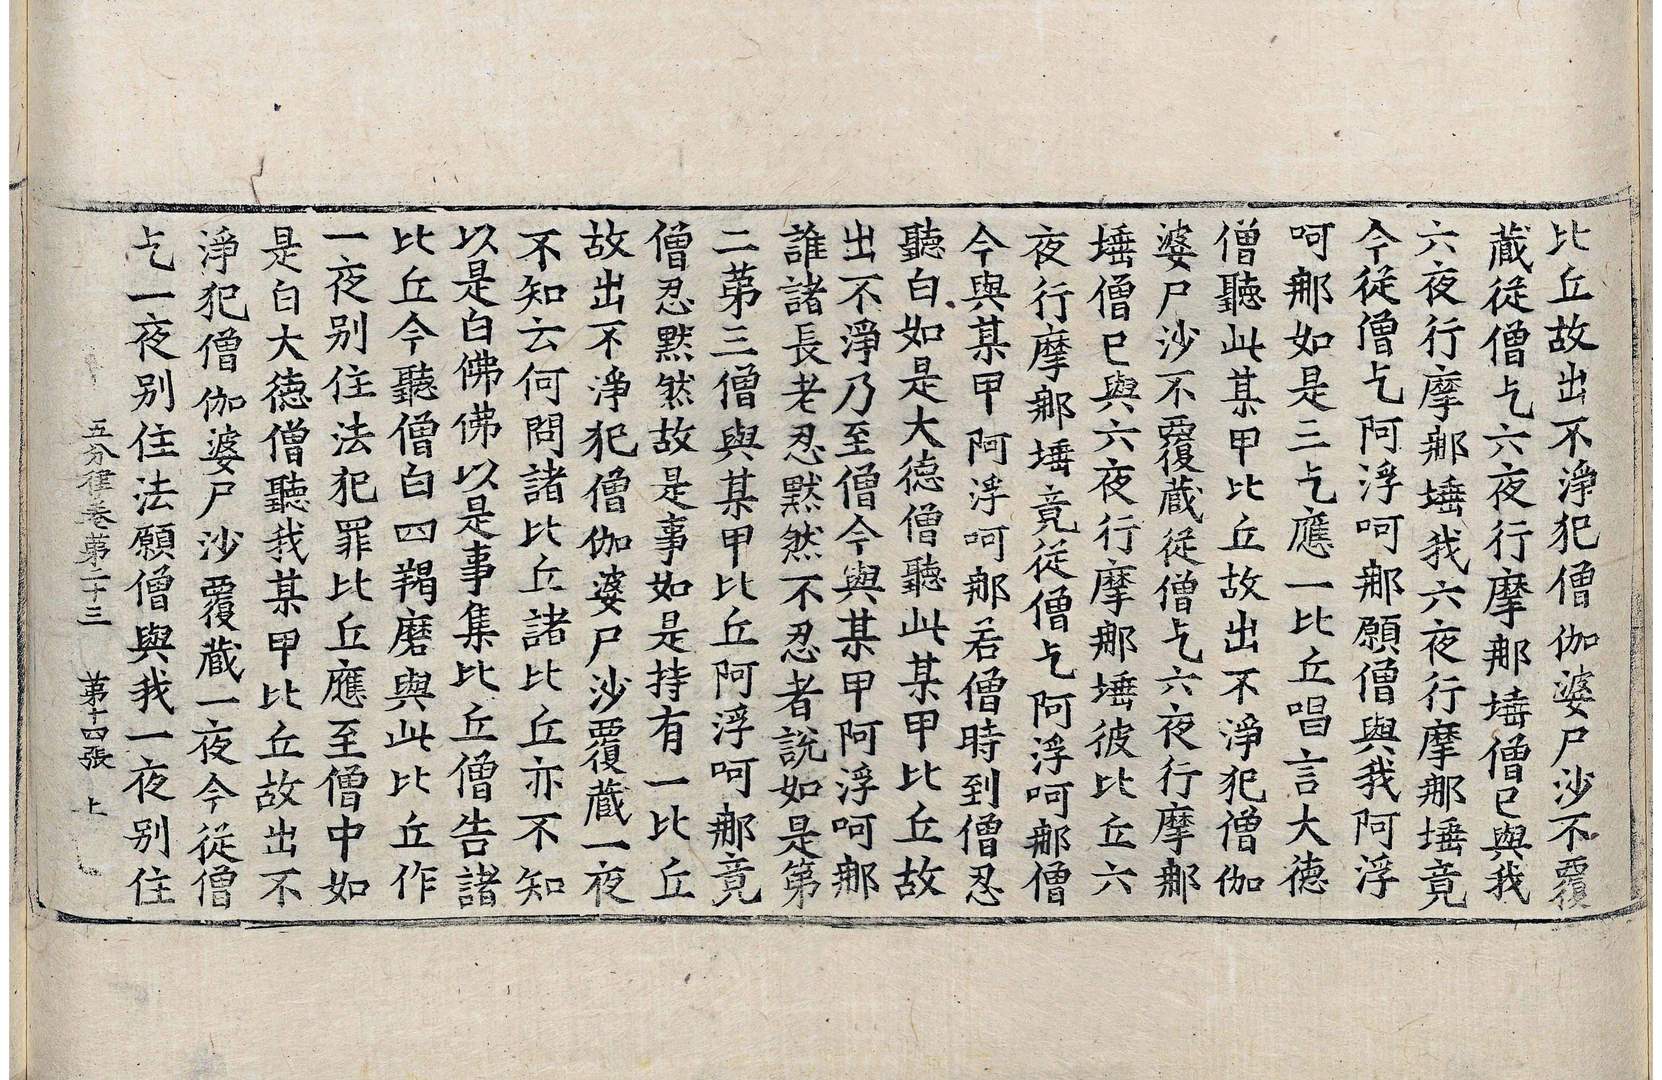 比丘故出不淨犯僧伽婆尸沙不覆
藏從僧乞六夜行摩那埵僧已與我
六夜行摩那埵我六夜行摩那埵竟
今從僧乞阿浮呵那願僧與我阿浮
呵那如是三乞應一比丘唱言大德
僧聽此某甲比丘故出不淨犯僧伽
婆尸沙不覆藏從僧乞六夜行摩那
埵僧已與六夜行摩那埵彼比丘六
夜行摩那埵竟從僧乞阿浮呵那僧
今與某甲阿浮呵那若僧時到僧忍
聽白如是大德僧聽此某甲比丘故
出不淨乃至僧今與某甲阿浮呵那
誰諸長老忍默然不忍者說如是第
二第三僧與某甲比丘阿浮呵那竟
僧忍默然故是事如是持有一比丘
故出不淨犯僧伽婆尸沙覆藏一夜
不知云何問諸比丘諸比丘亦不知
以是白佛佛以是事集比丘僧告諸
比丘今聽僧白四羯磨與此比丘作
一夜別住法犯罪比丘應至僧中如
是白大德僧聽我某甲比丘故出不
淨犯僧伽婆尸沙覆藏一夜今從僧
乞一夜別住法願僧與我一夜別住
五分律卷第二十三 第十四張 上